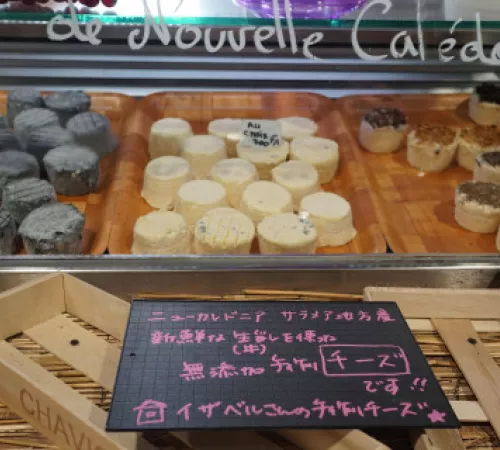 de Nouvelle Caléd
AU
ニューカレドニア サラメア地方産
新鮮な生乳を使った
(牛)
無添加 手作り チーズ
です!!
イザベルさんの手作りチーズ
CHAVI